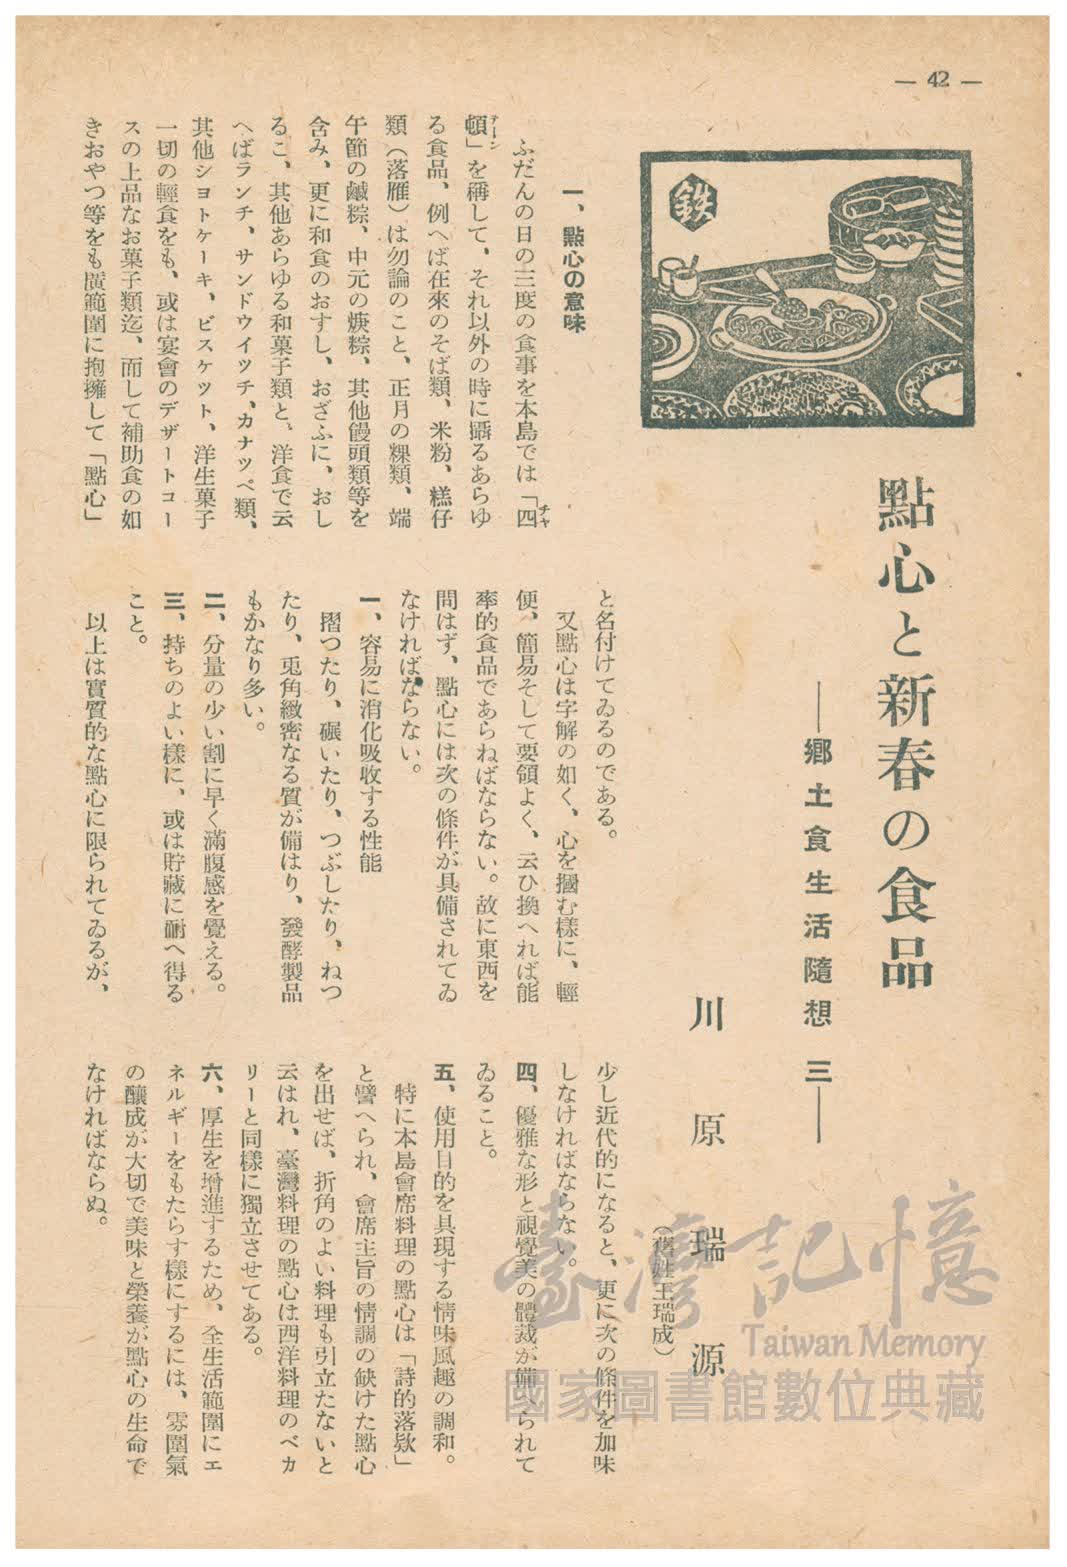 — 42 —
鉄
點心と新春の食品
——鄕土食生活隨想 三——
川原瑞源
(舊姓王瑞成)
一、點心の意味
ふだんの日の三度の食事を本島では「四
チヤ
頓」を稱して、それ以外の時に攝るあらゆ
テーン
る食品、例へば在來のそば類、米粉、糕仔
類(落雁)は勿論のこと、正月の粿類、端
午節の鹹粽、中元の焿粽、其他饅頭類等を
含み、更に和食のおすし、おざふに、おし
るこ、其他あらゆる和菓子類と、洋食で云
へばランチ、サンドウイツチ、カナツペ類、
其他シヨトケーキ、ビスケツト、洋生菓子
一切の輕食をも、或は宴會のデザートコー
スの上品なお菓子類迄、而して補助食の如
きおやつ等をも廣範圍に抱擁して「點心」
と名付けてゐるのである。
又點心は字解の如く、心を摑む樣に、輕
便、簡易そして要領よく、云ひ換へれば能
率的食品であらねばならない。故に東西を
問はず、點心には次の條件が具備されてゐ
なければならない。
一、容易に消化吸收する性能
摺つたり、碾いたり、つぶしたり、ねつ
たり、兎角緻密なる質が備はり、發酵製品
もかなり多い。
二、分量の少い割に早く滿腹感を覺える。
三、持ちのよい樣に、或は貯藏に耐へ得る
こと。
以上は實質的な點心に限られてゐるが、
少し近代的になると、更に次の條件を加味
しなければならない。
四、優雅な形と視覺美の體裁が備へられて
ゐること。
五、使用目的を具現する情味風趣の調和。
特に本島會席料理の點心は「詩的落欵」
と譬へられ、會席主旨の情調の缺けた點心
を出せば、折角のよい料理も引立たないと
云はれ、臺灣料理の點心は西洋料理のベカ
リーと同樣に獨立させてある。
六、厚生を增進するため、全生活範圍にエ
ネルギーをもたらす樣にするには、雰圍氣
の釀成が大切で美味と榮養が點心の生命で
なければならぬ。
臺灣記憶
Taiwan Memory
國家圖書館數位典藏